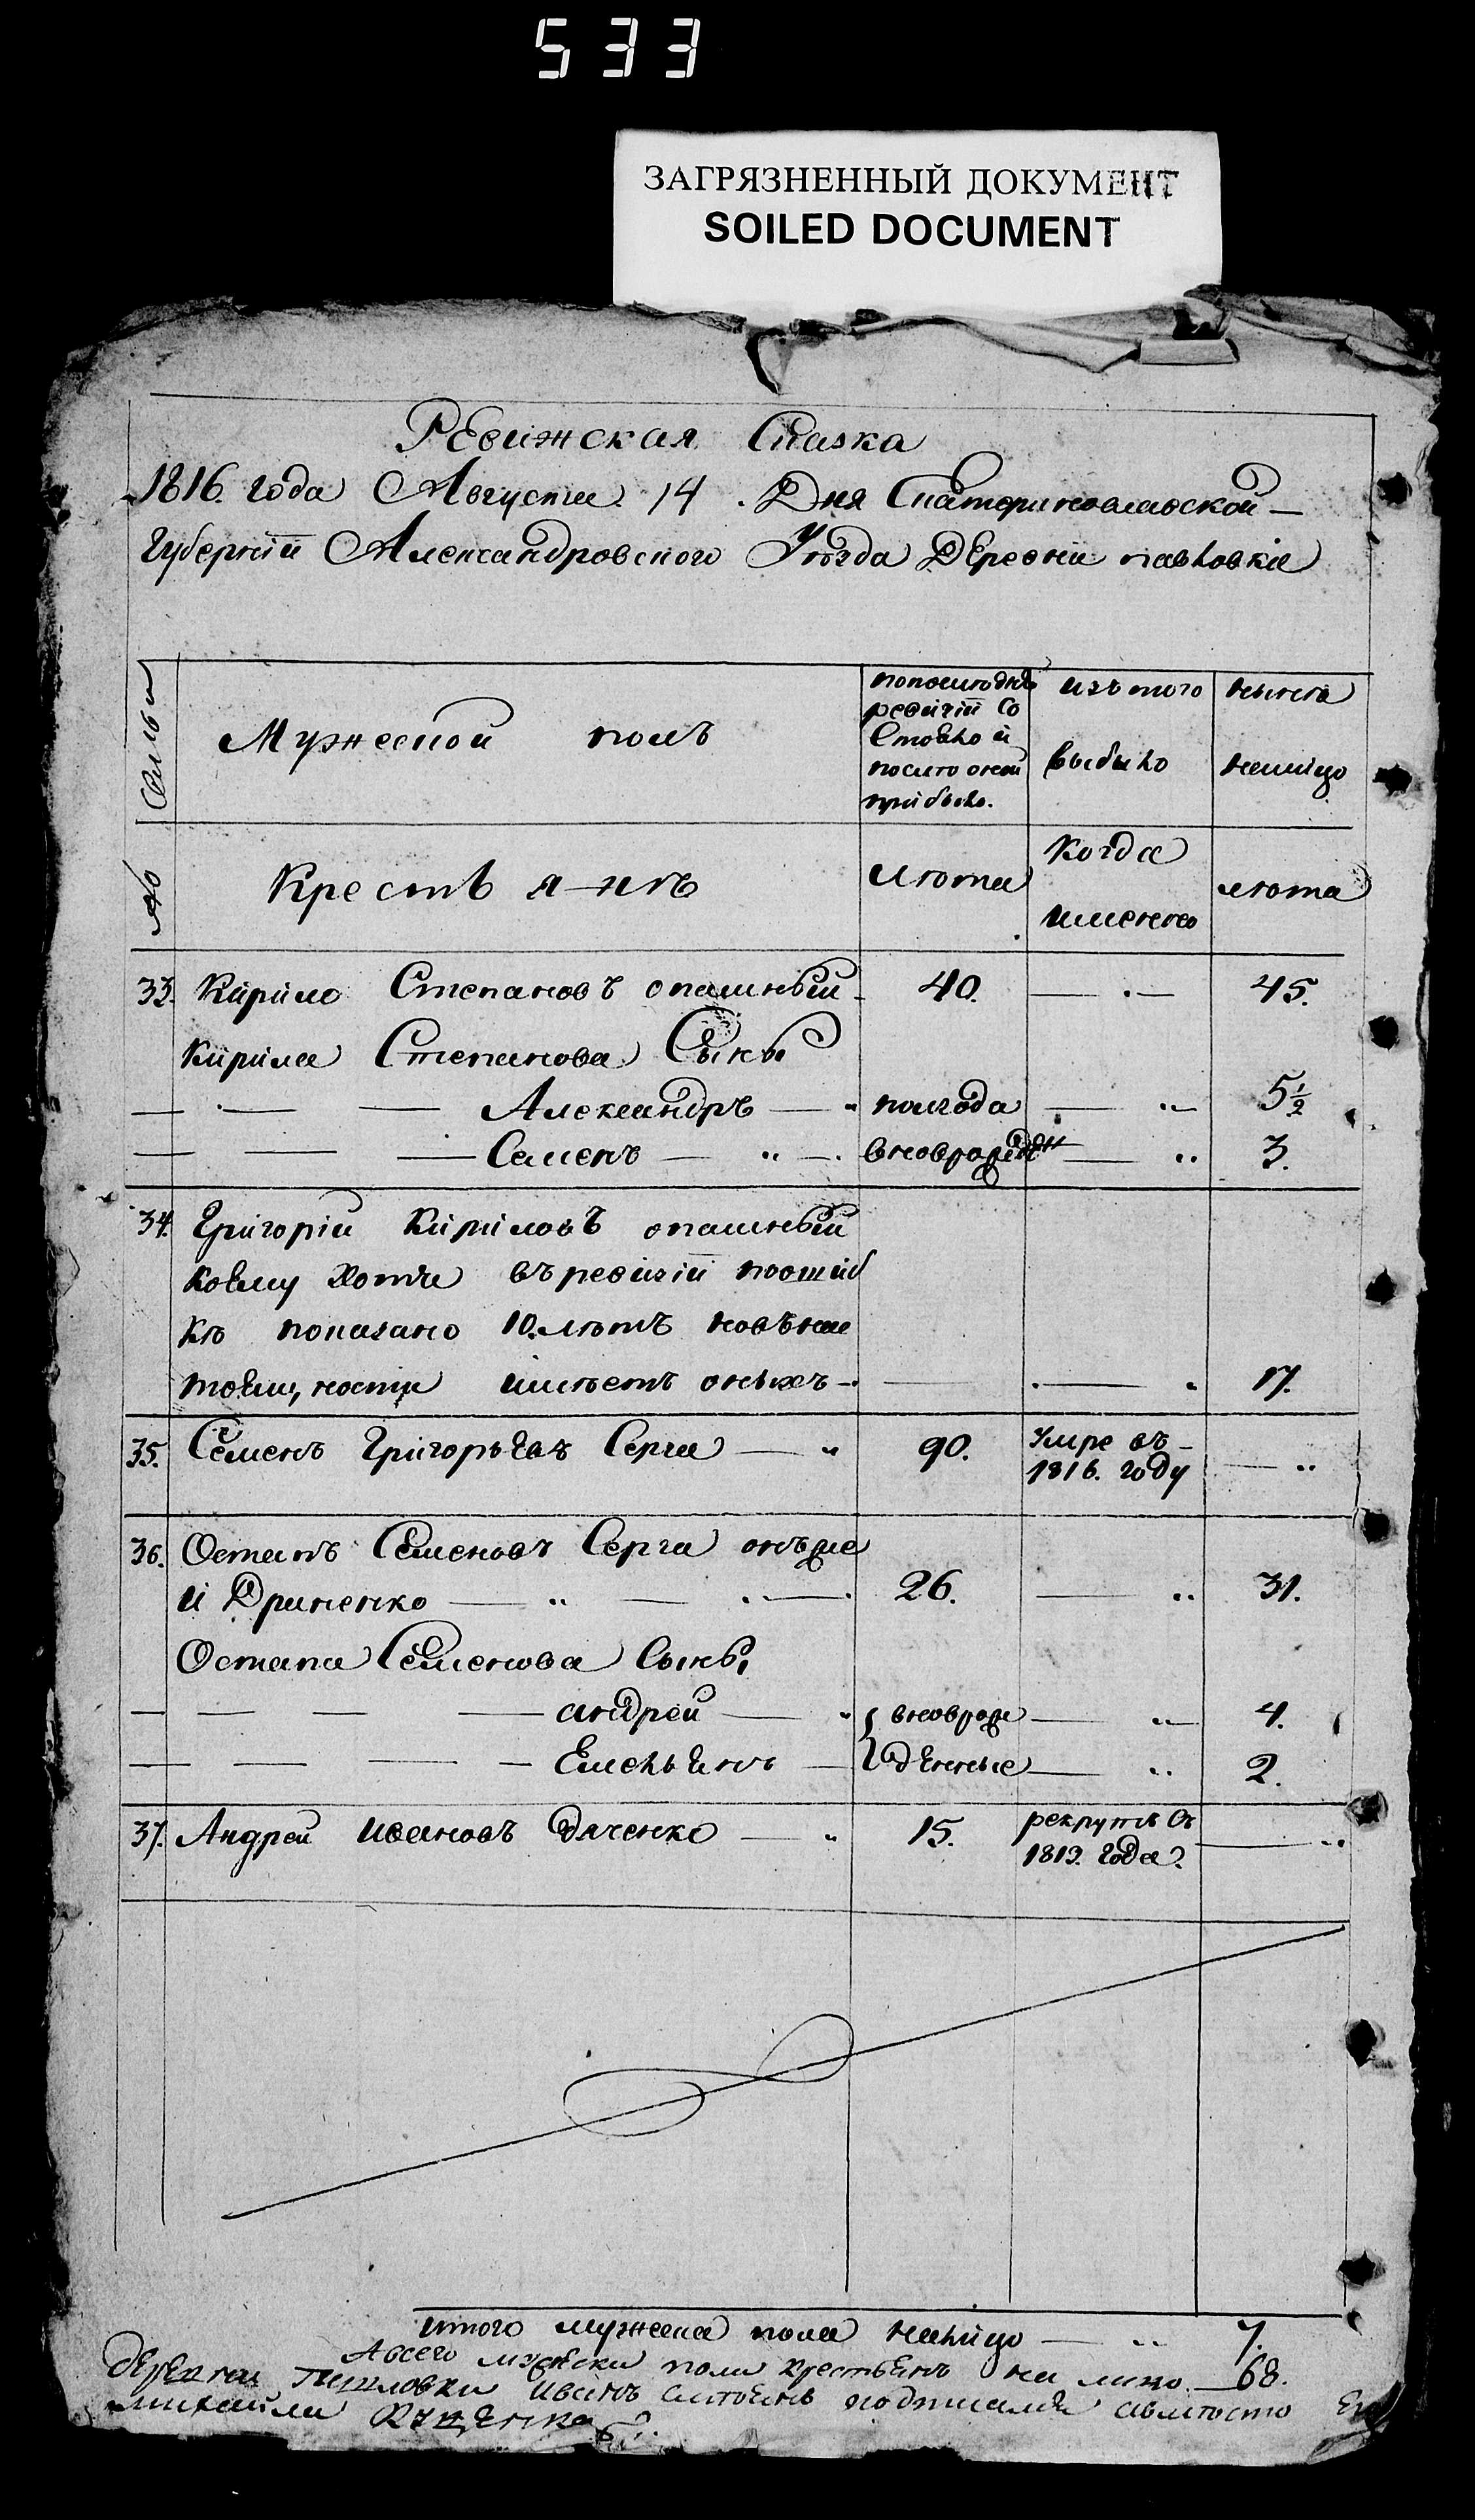 533
ЗАГРЯЗНЕННЫЙ ДОКУМЕНТ
SOILED DOCUMENT
Ревижская Сказка
1816. года Августа 14. Дня Екатеринославской
Губернїи Александровского Уезда Деревни павловки
№ Семьи
Мужеской полъ
попоследней ревизїи Состояло и после оной прибыло.
изъ того выбыло
ныне налицо
Крестьянъ
лета
Когда именно
лета
33. Кирило Степановъ опашный 40. 45.
Кирила Степанова Сыны
Александръ полгода 5½
Семенъ вновърожден 3.
34. Григорїй Кириловъ опашный
коему хотя въ ревизїи поошиб
ке показано 10. летъ но въ
имеетъ оныхъ 17.
35. Семенъ Григорьевъ Серга 90. умре въ 1816. году
36. Остапъ Семеновъ Серга онъже
и Дриненко 26. 31.
Остапа Семенова Сыны
андрей вноврож 4.
Емельянъ денные 2.
37. Андрей Ивановъ Дяченко 15. рекрутъ въ 1813. года
итого мужеска пола налицо 7.
Авсего мужеска пола крестьянъ на лицо 68.
деревни Павловки Иванъ подписался
михайла